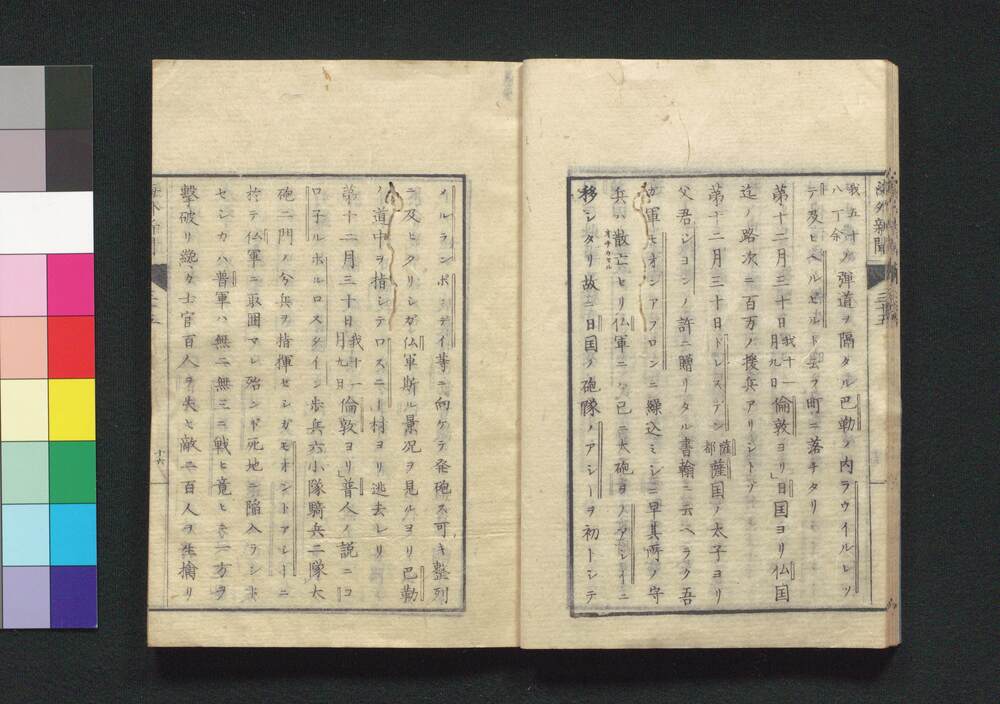 海外新聞
我五十八丁余ノ弾道ヲ隔タル巴勒ノ内ラウイルレツ
テ及ヒヘルビルト云フ町ニ落チタリ
第十二月三十日我十一月九日倫敦ヨリ」日国ヨリ仏国
迄ノ路次ニ百万ノ援兵アリシトゾ
第十二月三十日ドレスデン薩都薩国ノ太子ヨリ
父君ジヨンノ許ニ贈リタル書翰ニ云ヘラク吾
軍モオンアフロンニ繰込ミシニ早其所ノ守
兵ハ散亡セリ仏軍ニハ已ニ大砲ヲノアシイニ
移シタリオチカセル故ニ日国ノ砲隊ノアシーヲ初トシテ
イルランボンデイ等ニ向ケテ発砲ス可キ整列
ニ及ヒタリシガ仏軍斯ル景況ヲ見ルヨリ巴勒
ノ道中ヲ指シテロスニー村ヨリ逃去レリ
第十二月三十日我十一月九日倫敦ヨリ」普人ノ説ニコ
ロ子ルボルロスタイン歩兵六小隊騎兵二隊大
砲二門ノ今兵ヲ指揮セシガモオントアシーニ
於テ仏軍ニ取囲マレ殆ンド死地ニ陥入ラント
センカハ普軍ハ無二無三ニ戦ヒ竟ヒニ一方ヲ
撃破リ纔ク士官百人ヲ失ヒ敵ニ百人ヲ生擒リ
十六